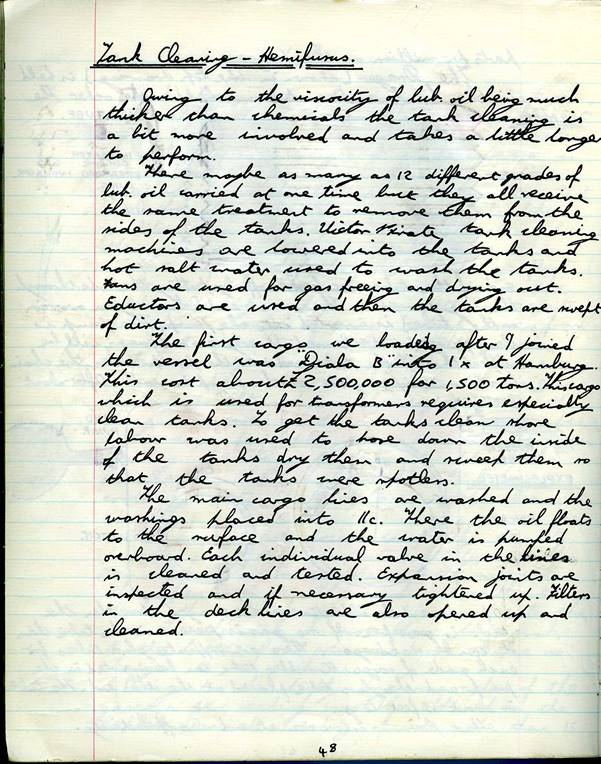 Tank Cleaning - Hemifusus.
Owing to the viscosity of lub. oil being much
thicker than chemicals the tank cleaning is
a bit more involved and takes a little longer
to perform.
There maybe as many as 12 different grades of
lub. oil carried at one time but they all receive
the same treatment to remove them from the
sides of the tanks. Victor Pirate tank cleaning
machines are lowered into the tanks and
hot salt water used to wash the tanks.
Fans are used for gas freeing and drying out.
Eductors are used and then the tanks are swept
of dirt.
The first cargo we loaded after I joined
the vessel was "Diala B" into 1x at Hamburg.
This cost about £2,500,000 for 1,500 tons. This cargo
which is used for transformers requires especially
clean tanks. To get the tanks clean shore
labour was used to hose down the inside
of the tanks dry them and sweep them so
that the tanks were spotless.
The main cargo lines are washed and the
washings placed into 11c. There the oil floats
to the surface and the water is pumped
overboard. Each individual valve in the lines
is cleaned and tested. Expansion joints are
inspected and if necessary tightened up. Filters
in the deck lines are also opened up and
cleaned.
48